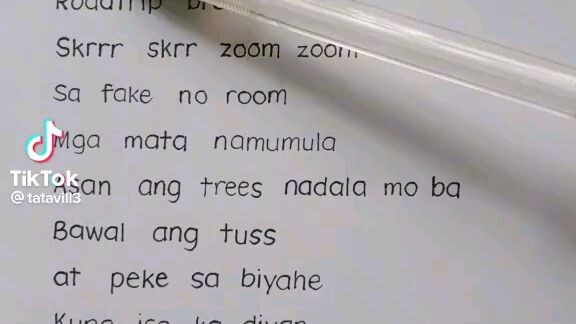 Roadtrip
Skrrr skrr zoom zoom
Sa fake no room
Mga mata namumula
Asan ang trees nadala mo ba
Bawal ang tuss
at peke sa biyahe
Kung isa ka diyan
TikTok
@tatavill3